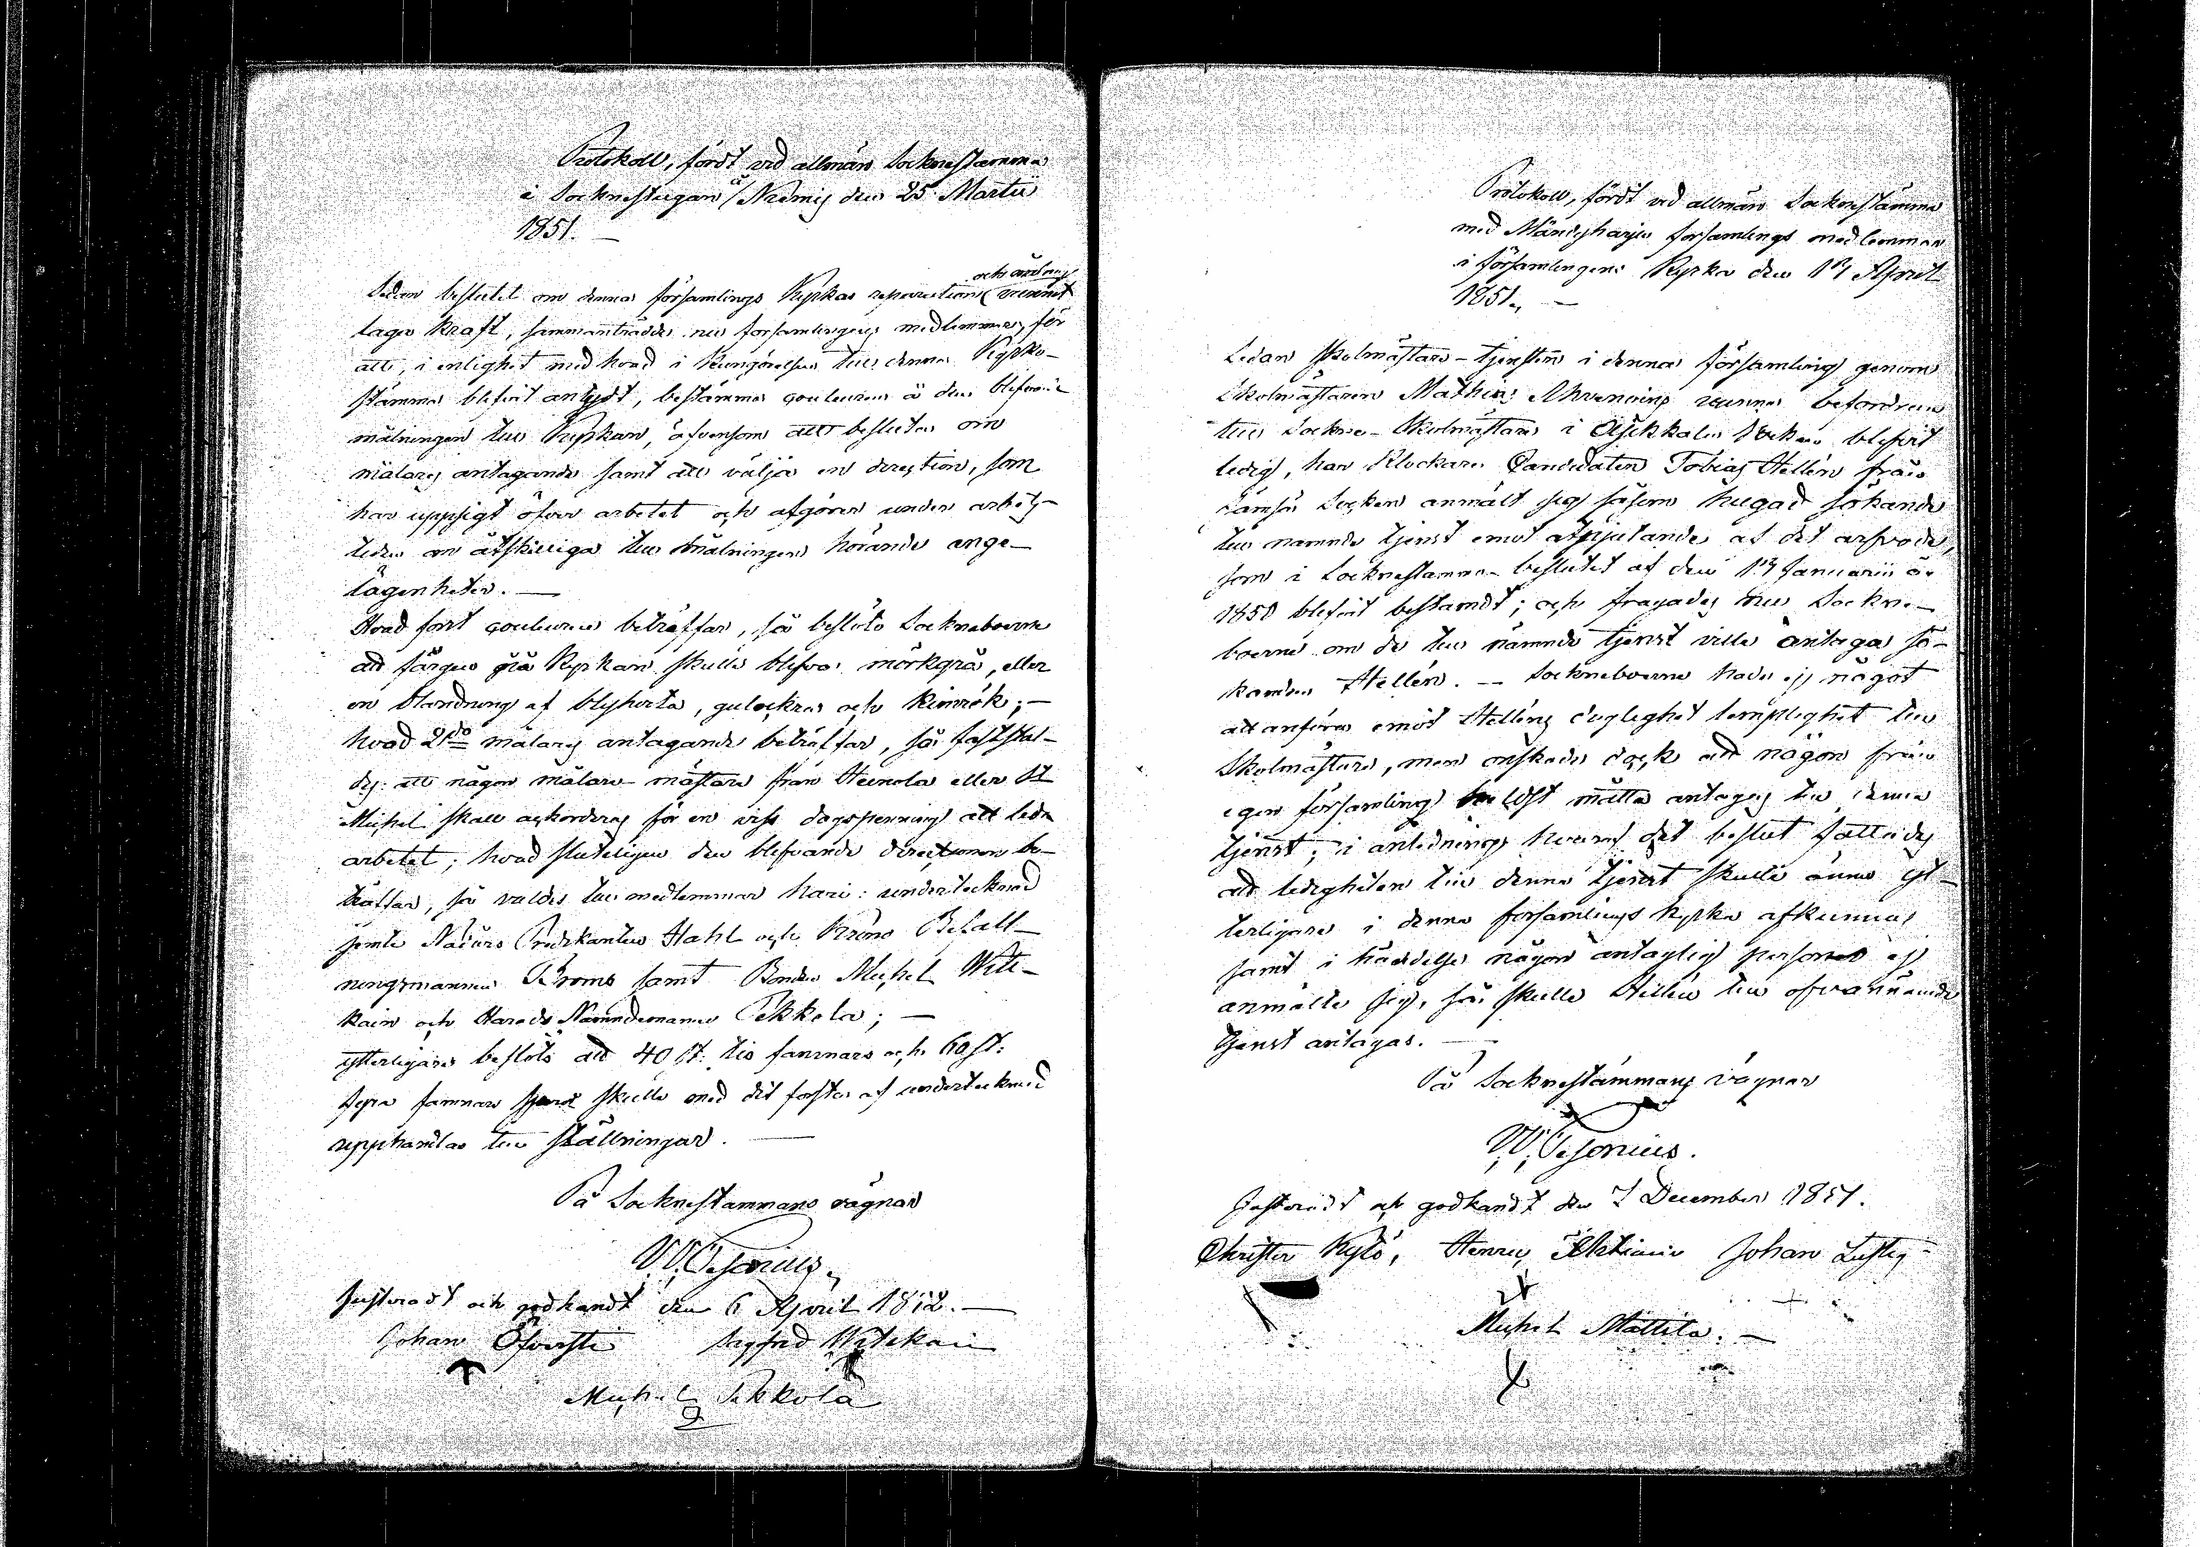 Protokoll, fördt vid allmän Sockenstämma
i Socknestugan å Niemis den 25 Martii
1851. —
Sedan beslutet om denna församlings Kyrkas reparation och målning vunnit
laga kraft, sammanträdde nu församlingens medlemmar, för
att, i enlighet med hvad i Kungörelsen till denna Kyrko-
stämma blifvit antydt, bestämma couleuren å den blifvande
målningen till Kyrkan, äfvensom att besluta om
målares antagande samt att välja en direction, som
har uppsigt öfver arbetet och afgörer under arbets-
tiden om åtskilliga till målningen hörande ange-
lägenheter. —
Hvad först couleuren beträffar, så beslöto Socknaboerne
att färgen på Kyrkan skulle blifva mörkgrå, eller
en blandning af blyhvita, gulockra och kimrök; —
hvad 2do målares antagande beträffar, så faststäl-
des att någon målare-mästare från Heinola eller St
Michel skall ackorderas för en viss dagspenning att leda
arbetet; hvad slutligen den blifvande directionen be-
träffar, så valdes till medlemmar häri: undertecknad
jemte Predikanten Stahl och Krono Befall-
ningsmannen Broms samt Bonden Michel Wite-
kain och Harads Nämndemannen Pekkola; —
ytterligare beslöts att 40 st: tio famnars och 60 st:
sju famnars skulle med det första af undertecknad
upphandlas till ställningar. —
På Socknestämmans vägnar
W. Cesonius.
Justeradt och godkändt den 6 April 1852. —
Johan Öfversti Sigfred Witekain
Michel Pekkola
Protokoll, fördt vid allmän Sockenstämma
med Mändyharju församlings medlemmar
i församlingens Kyrka den 14 April
1851. —
Sedan Skolmästare-tjensten i denna församling genom
Skolmästaren Mathias Ahvenains vunna befordran
till Sockne-Skolmästare i Asikkala Socken blifvit
ledig, har Klockare Candidaten Tobias Hellén från
Jämsä Socken anmält sig såsom hugad sökande
till nämnde tjenst emot åtnjutande af det arfvode,
som i Socknestämma beslutet af den 14 Januarii år
1850 blifvit bestämdt; och frågades nu Sockne-
boerne om de till nämnde tjenst ville antaga sö-
kanden Hellén. — Socknaboerne hade ej något
att anföra emot Helléns duglighet lämplighet till
Skolmästare, men önskade dock att någon från
egen församling helst måtte antagas till denna
tjenst; i anledning hvaraf det beslut fattades
att ledigheten till denna tjenst skulle ännu yt-
terligare i denna församlings kyrka afkunnas
samt i händelse någon antaglig person ej
anmälte sig, så skulle Hellén till ofvannämnde
tjenst antagas. —
På Socknestämmans vägnar
W. Cesonius.
Justeradt och godkändt den 7 December 1851.
Christer Kylö, Henric Johan Lustig
Michel Mattila. —